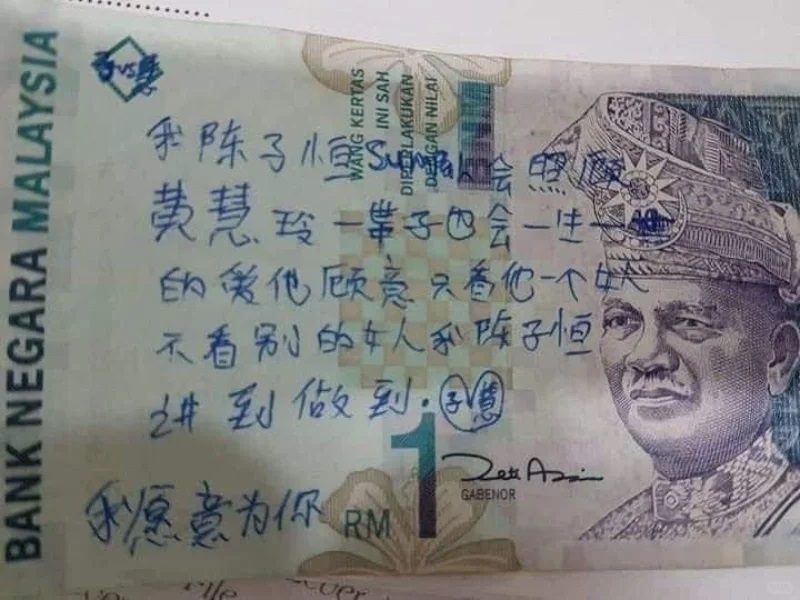 BANK NEGARA MALAYSIA
子vs慧
WANG KERTAS
INI SAH
DIPERLAKUKAN
DENGAN NILAI
我陈子恒Sumpah会照顾
黄慧玲一辈子也会一生一
的爱他顾意只看他一个女人
不看别的女人我陈子恒
讲到做到.子慧
我愿意为你
RM 1
GABENOR